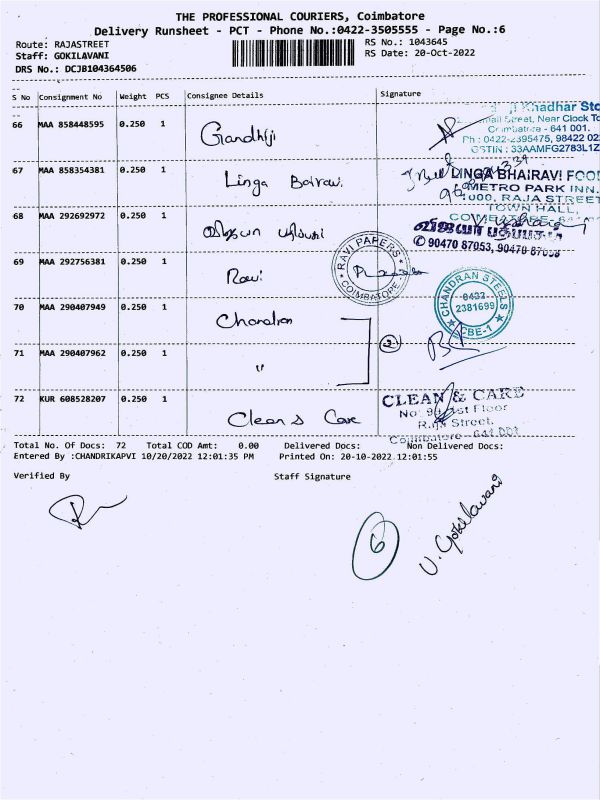 THE PROFESSIONAL COURIERS, Coimbatore
Delivery Runsheet - PCT - Phone No.:0422-3505555 - Page No.:6
Route: RAJASTREET
RS No.: 1043645
Staff: GOKILAVANI
RS Date: 20-Oct-2022
DRS No.: DCJB104364506
S No Consignment No Weight PCS Consignee Details Signature
66 MAA 858448595 0.250 1 Gandhiji
Khadhar Sto
Street, Near Clock To
Coimbatore - 641 001.
Ph : 0422-2395475, 98422 02
GSTIN : 33AAMFG2783L1Z
67 MAA 858354381 0.250 1 Linga Bairavi
LINGA BHAIRAVI FOO
METRO PARK INN,
RAJA STREET
TOWN HALL,
68 MAA 292692972 0.250 1 விஜயா
விஜயா பதிப்பகம்
✆ 90470 87053, 90470 87058
69 MAA 292756381 0.250 1 Ravi
RAVI PAPERS
COIMBATORE
70 MAA 290407949 0.250 1 Chandran
CHANDRAN STEELS
0422
2381699
CBE-1
71 MAA 290407962 0.250 1 "
2
72 KUR 608528207 0.250 1 Clean & Care
CLEAN & CARE
st Floor
Raja Street,
Coimbatore - 641 001
Total No. Of Docs: 72 Total COD Amt: 0.00 Delivered Docs: Non Delivered Docs:
Entered By :CHANDRIKAPVI 10/20/2022 12:01:35 PM Printed On: 20-10-2022 12:01:55
Verified By Staff Signature
6
V. Gokilavani